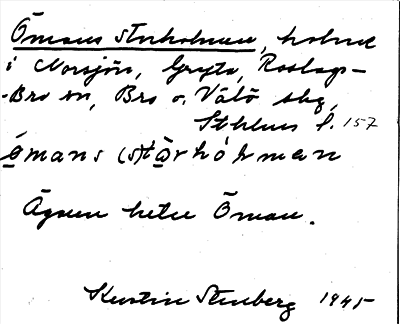 Ömans storholmen, holme
i Norsjön, Gryta, Roslags-
-Bro sn, Bro o. Vätö skg,
Sthlms l. 157
ömans (st)ǫrhòlman
Ägaren heter Öman.
Kerstin Stenberg 1945